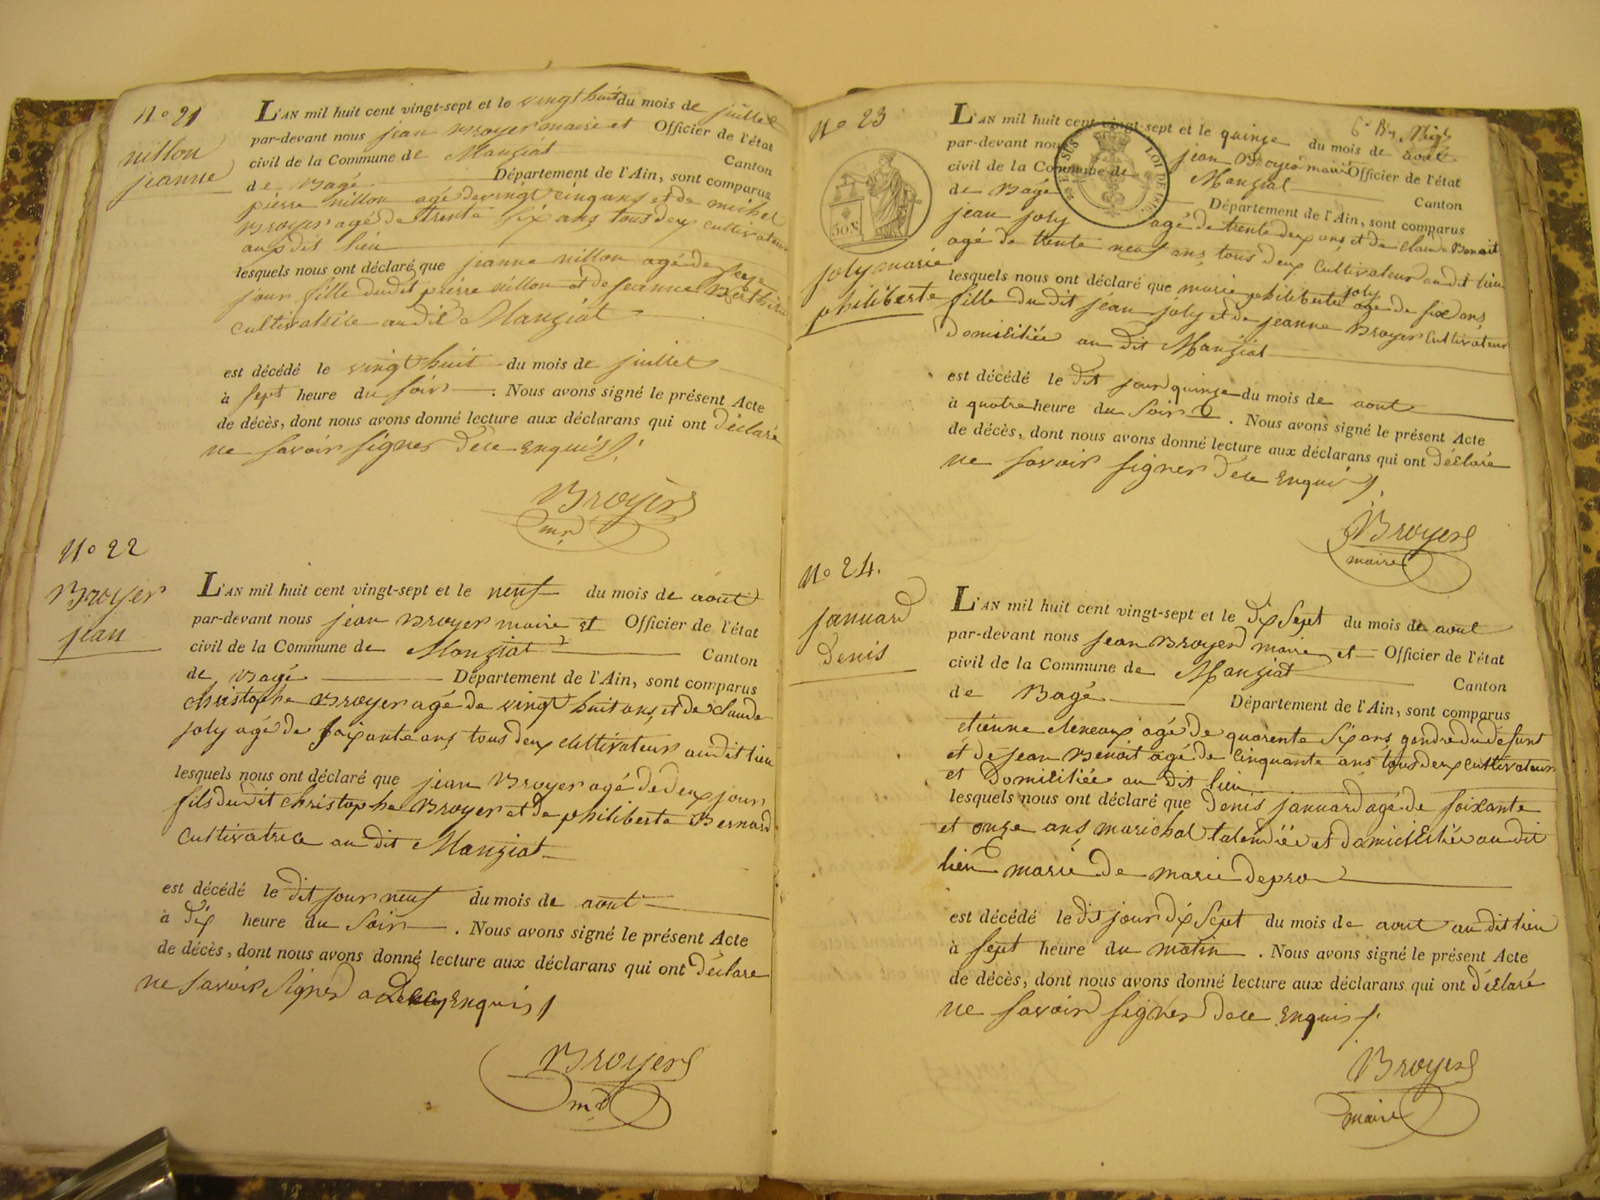 N° 21
nillon
jeanne
L'AN mil huit cent vingt-sept et le vingt huit du mois de juillet
par-devant nous jean Broyer maire et Officier de l'état
civil de la Commune de Manziat Canton
de Bagé Département de l'Ain, sont comparus
pierre nillon agé de vingt cinq ans et de michel
Broyer agé de trente six ans tous deux cultivateur
audit lieu
lesquels nous ont déclaré que jeanne nillon agé de
jour fille dudit pierre nillon et de jeanne
cultivatrice audit Manziat
est décédé le vingt huit du mois de juillet
à sept heure du soir . Nous avons signé le présent Acte
de décès, dont nous avons donné lecture aux déclarans qui ont déclaré
ne savoir signer de ce enquis
Broyer
mr
N° 22
Broyer
jean
L'AN mil huit cent vingt-sept et le neuf du mois de aout
par-devant nous jean Broyer maire et Officier de l'état
civil de la Commune de Manziat Canton
de Bagé Département de l'Ain, sont comparus
christophe Broyer agé de vingt huit ans et de claude
joly agé de soixante ans tous deux cultivateur audit lieu
lesquels nous ont déclaré que jean Broyer agé de deux jour
fils dudit christophe Broyer et de philiberte Bernard
cultivatrice au dit Manziat
est décédé le dit jour neuf du mois de aout
à dix heure du soir . Nous avons signé le présent Acte
de décès, dont nous avons donné lecture aux déclarans qui ont déclare
ne savoir signer enquis
Broyer
mr
N° 23
joly marie
philiberte
L'AN mil huit cent vingt-sept et le quinze du mois de aout
par-devant nous jean Broyer maire Officier de l'état
civil de la Commune de Manziat Canton
de Bagé Département de l'Ain, sont comparus
jean joly agé de trente deux ans et de claude Benoit
agé de trente neuf ans tous deux cultivateur audit lieu
lesquels nous ont déclaré que marie philiberte joly agé de six ans
fille du dit jean joly et de jeanne Broyer cultivateur
domiciliée au dit Manziat
est décédé le dit jour quinze du mois de aout
à quatre heure du soir . Nous avons signé le présent Acte
de décès, dont nous avons donné lecture aux déclarans qui ont déclaré
ne savoir signer de ce enquis
Broyer
maire
N° 24.
januard
Denis
L'AN mil huit cent vingt-sept et le dix sept du mois de aout
par-devant nous jean Broyer maire et Officier de l'état
civil de la Commune de Manziat Canton
de Bagé Département de l'Ain, sont comparus
etienne agé de quarente six ans gendre du defunt
et de jean Benoit agé de cinquante ans tous deux cultivateur
et domiciliée au dit lieu
lesquels nous ont déclaré que denis januard agé de soixante
et onze ans marichal et domiciliée au dit
lieu marié de marie depro
est décédé le dit jour dix sept du mois de aout audit lieu
à sept heure du matin . Nous avons signé le présent Acte
de décès, dont nous avons donné lecture aux déclarans qui ont déclaré
ne savoir signer de ce enquis
Broyer
maire